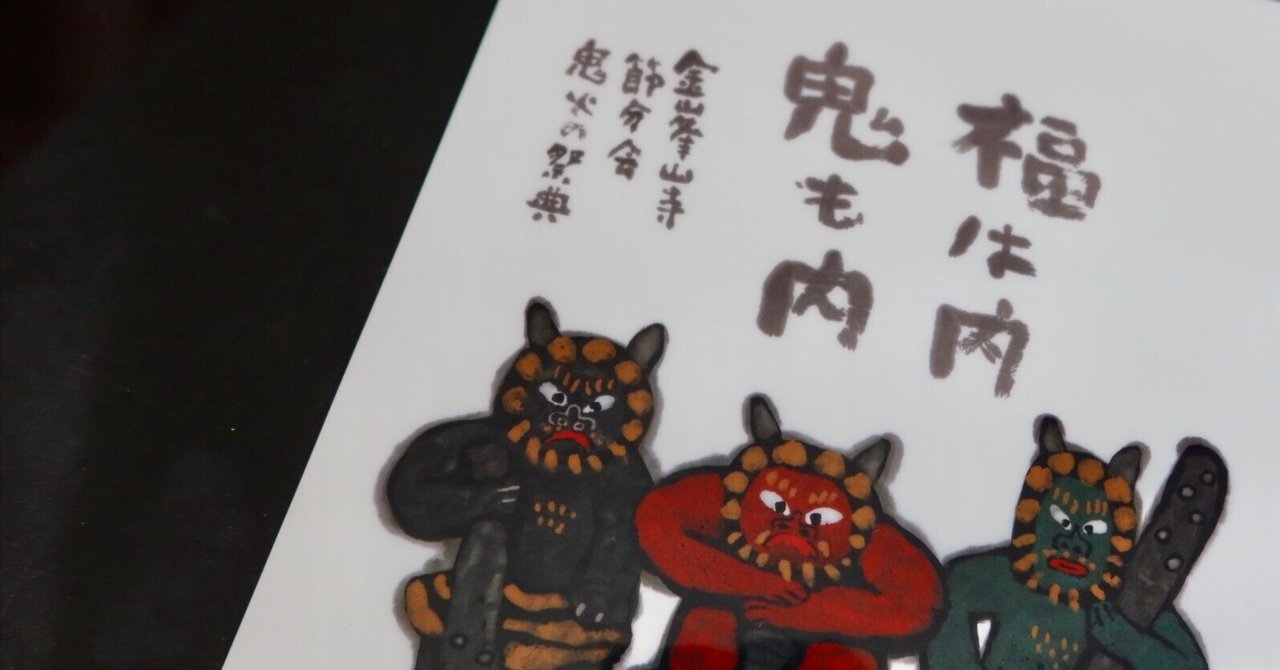 福は内
鬼も内
金峯山寺
節分会
鬼火の祭典